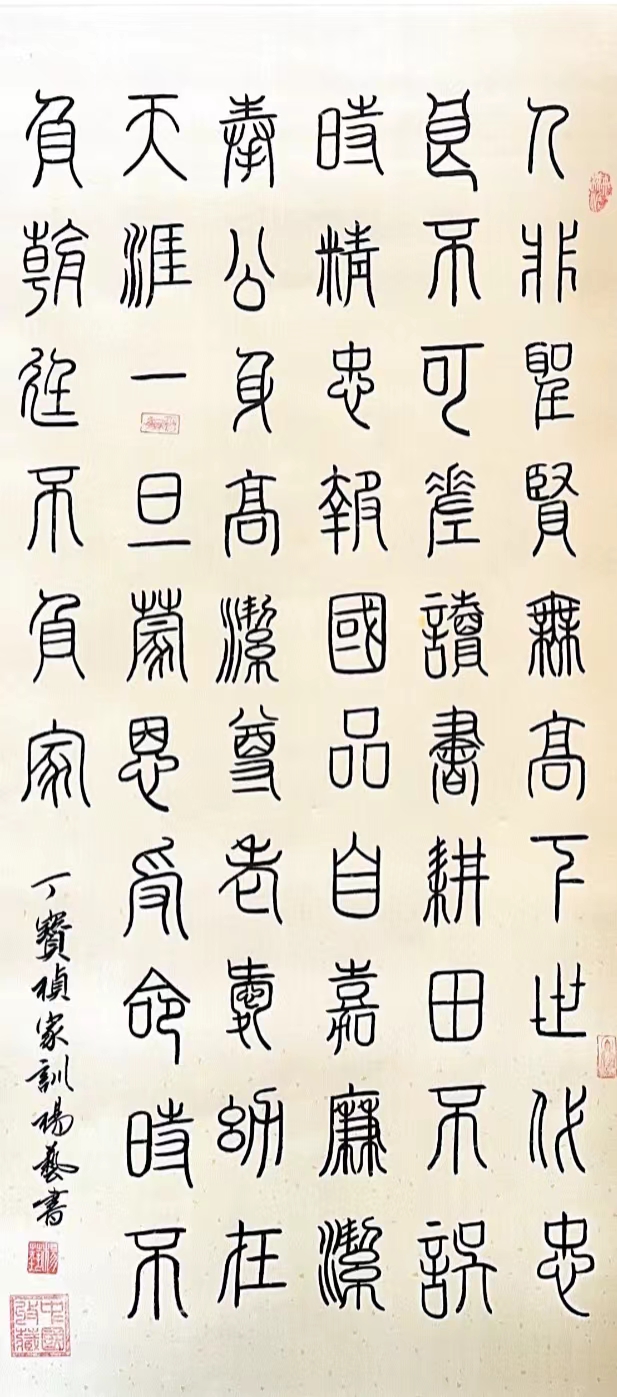 人非聖賢無高下世代忠
良不可差讀書耕田不誤
時精忠報國品自嘉廉潔
奉公身高潔尊老愛幼在
天涯一旦蒙恩受命時不
負朝廷不負家
丁寶楨家訓楊藝書
中國收藏